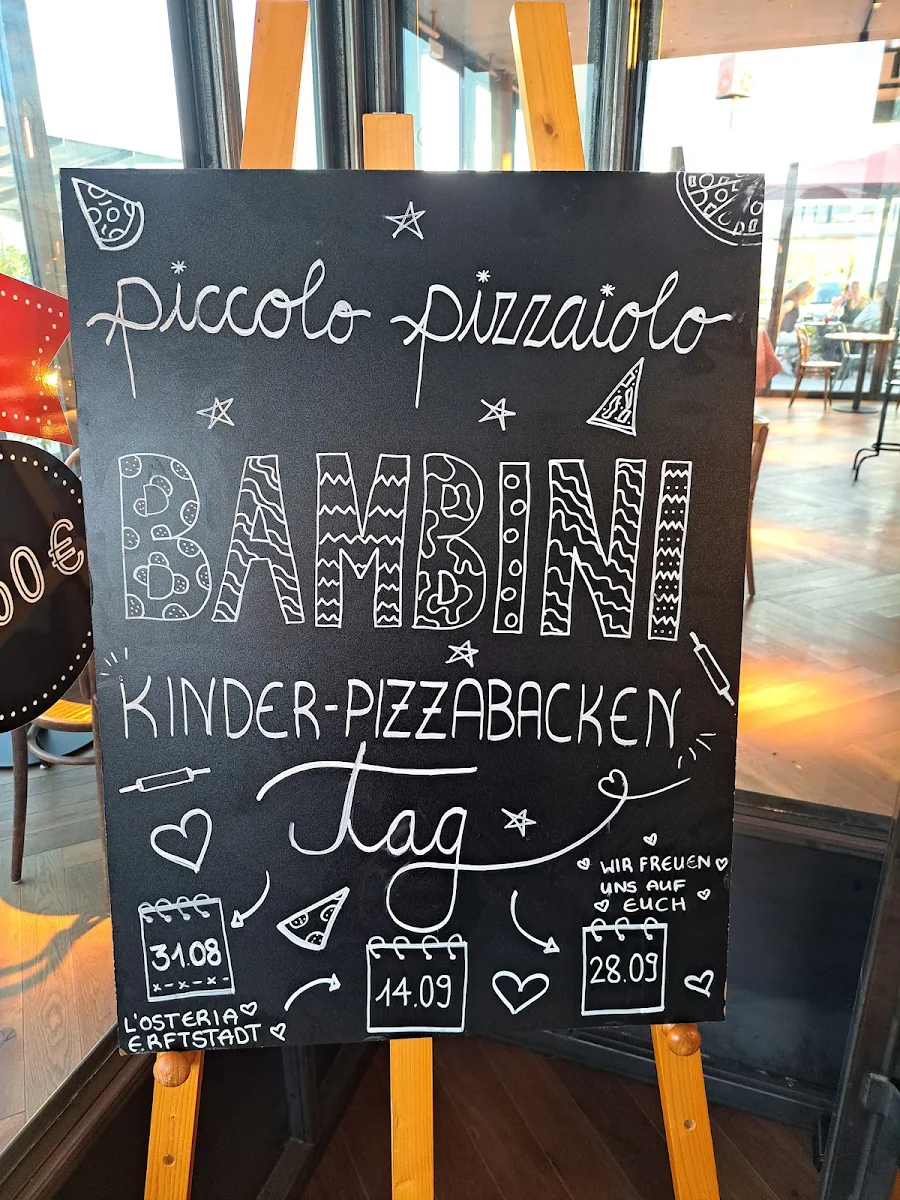 piccolo pizzaiolo
BAMBINI
KINDER-PIZZABACKEN
Tag
WIR FREUEN
UNS AUF
EUCH
31.08
x-x-x-
14.09
28.09
L'OSTERIA
ERFTSTADT
€